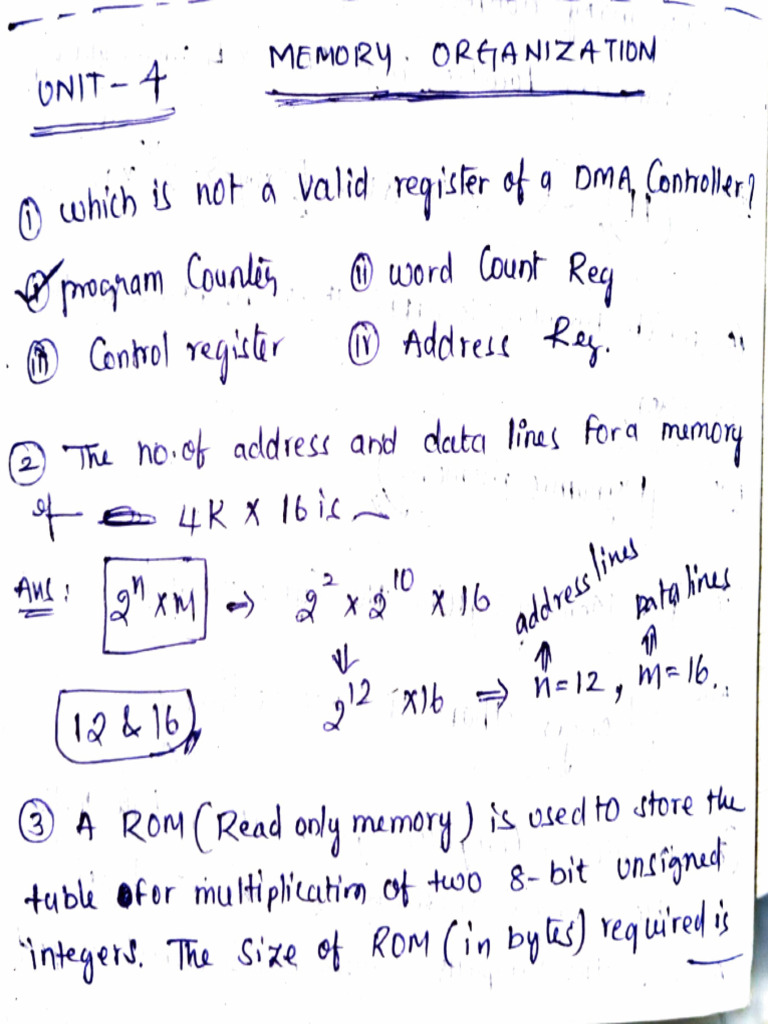 UNIT-4 : MEMORY. ORGANIZATION
① which is not a valid register of a DMA Controller?
ⓘ program Counter ⓘⓘ word Count Reg
ⓘⓘⓘ Control register ⓘⓥ Address Reg.
② The no.of address and data lines for a memory
of 4K X 16 is —
Ans: 2ⁿ x M ⇒ 2² x 2¹⁰ x 16 address lines Data lines
12 & 16 2¹² x16 ⇒ n=12, m=16.
③ A ROM (Read only memory) is used to store the
table for multiplication of two 8-bit unsigned
integers. The size of ROM (in bytes) required is